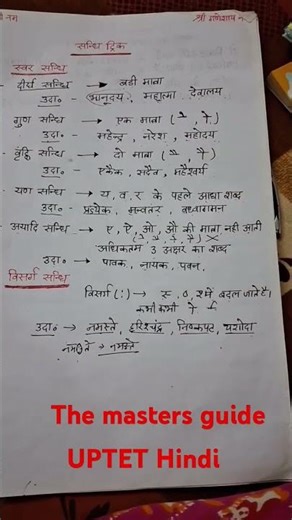 श्री गणेशाय न
सन्धि ट्रिक
स्वर सन्धि
दीर्घ सन्धि → बडी मात्रा
उदा॰ भानुदय, महात्मा देवालय
गुण सन्धि → एक मात्रा (े, ो)
उदा॰ - महेन्द्र, नरेश, महोदय
वृद्धि सन्धि → दो मात्रा (ै ौ)
उदा॰ एकैक, सदैव, महैश्वर्य
यण सन्धि → य, व, र के पहले आधा शब्द
उदा॰ - प्रत्येक, मन्वतर,
अयादि सन्धि → ए, ऐ, ओ, औ की मात्रा नही आती
(े, ै, ो, ौ) X
अधिकतम 3 अक्षर का शब्द
उदा॰ → पावक, नायक, पवन,
विसर्ग सन्धि
विसर्ग (:) → स, श, ष में बदल जाते है।
कभी कभी
उदा॰ → नमस्ते, हरिश्चंद्र, निष्कपट, यशोदा
नमः ते → नमस्ते
The masters guide
UPTET Hindi